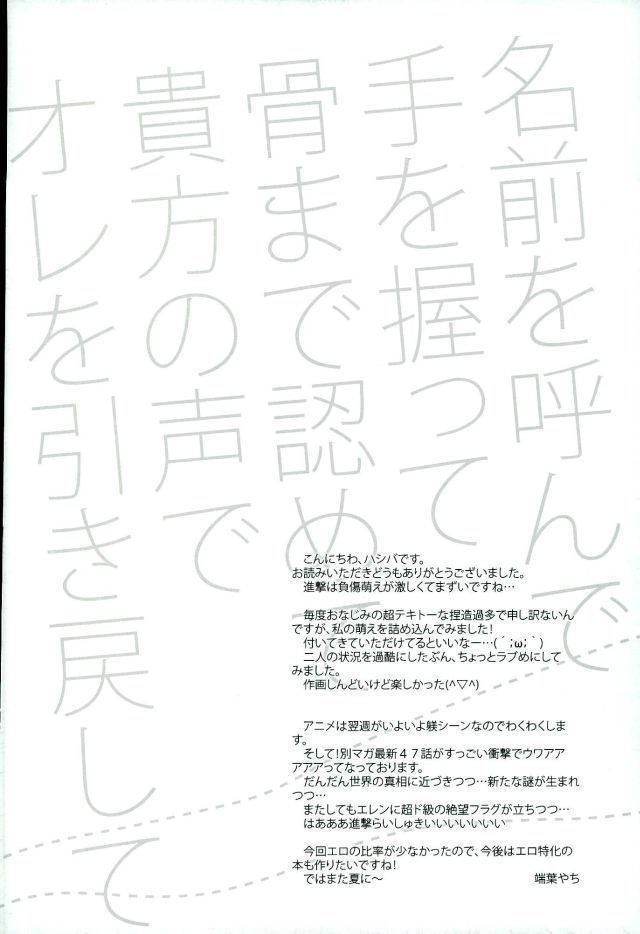 名前を呼んで
手を握って
骨まで認めて
貴方の声で
オレを引き戻して
こんにちわ、ハシバです。
お読みいただきどうもありがとうございました。
進撃は負傷萌えが激しくてまずいですね…
毎度おなじみの超テキトーな捏造過多で申し訳ないん
ですが、私の萌えを詰め込んでみました!
付いてきていただけてるといいなー…(´;ω;｀)
二人の状況を過酷にしたぶん、ちょっとラブめにして
みました。
作画しんどいけど楽しかった(^▽^)
アニメは翌週がいよいよ躾シーンなのでわくわくしま
す。
そして!別マガ最新４７話がすっごい衝撃でウワアア
アアアってなっております。
だんだん世界の真相に近づきつつ…新たな謎が生まれ
つつ…
またしてもエレンに超ド級の絶望フラグが立ちつつ…
はあああ進撃らいしゅきいいいいいいい
今回エロの比率が少なかったので、今後はエロ特化の
本も作りたいですね!
ではまた夏に～ 端葉やち